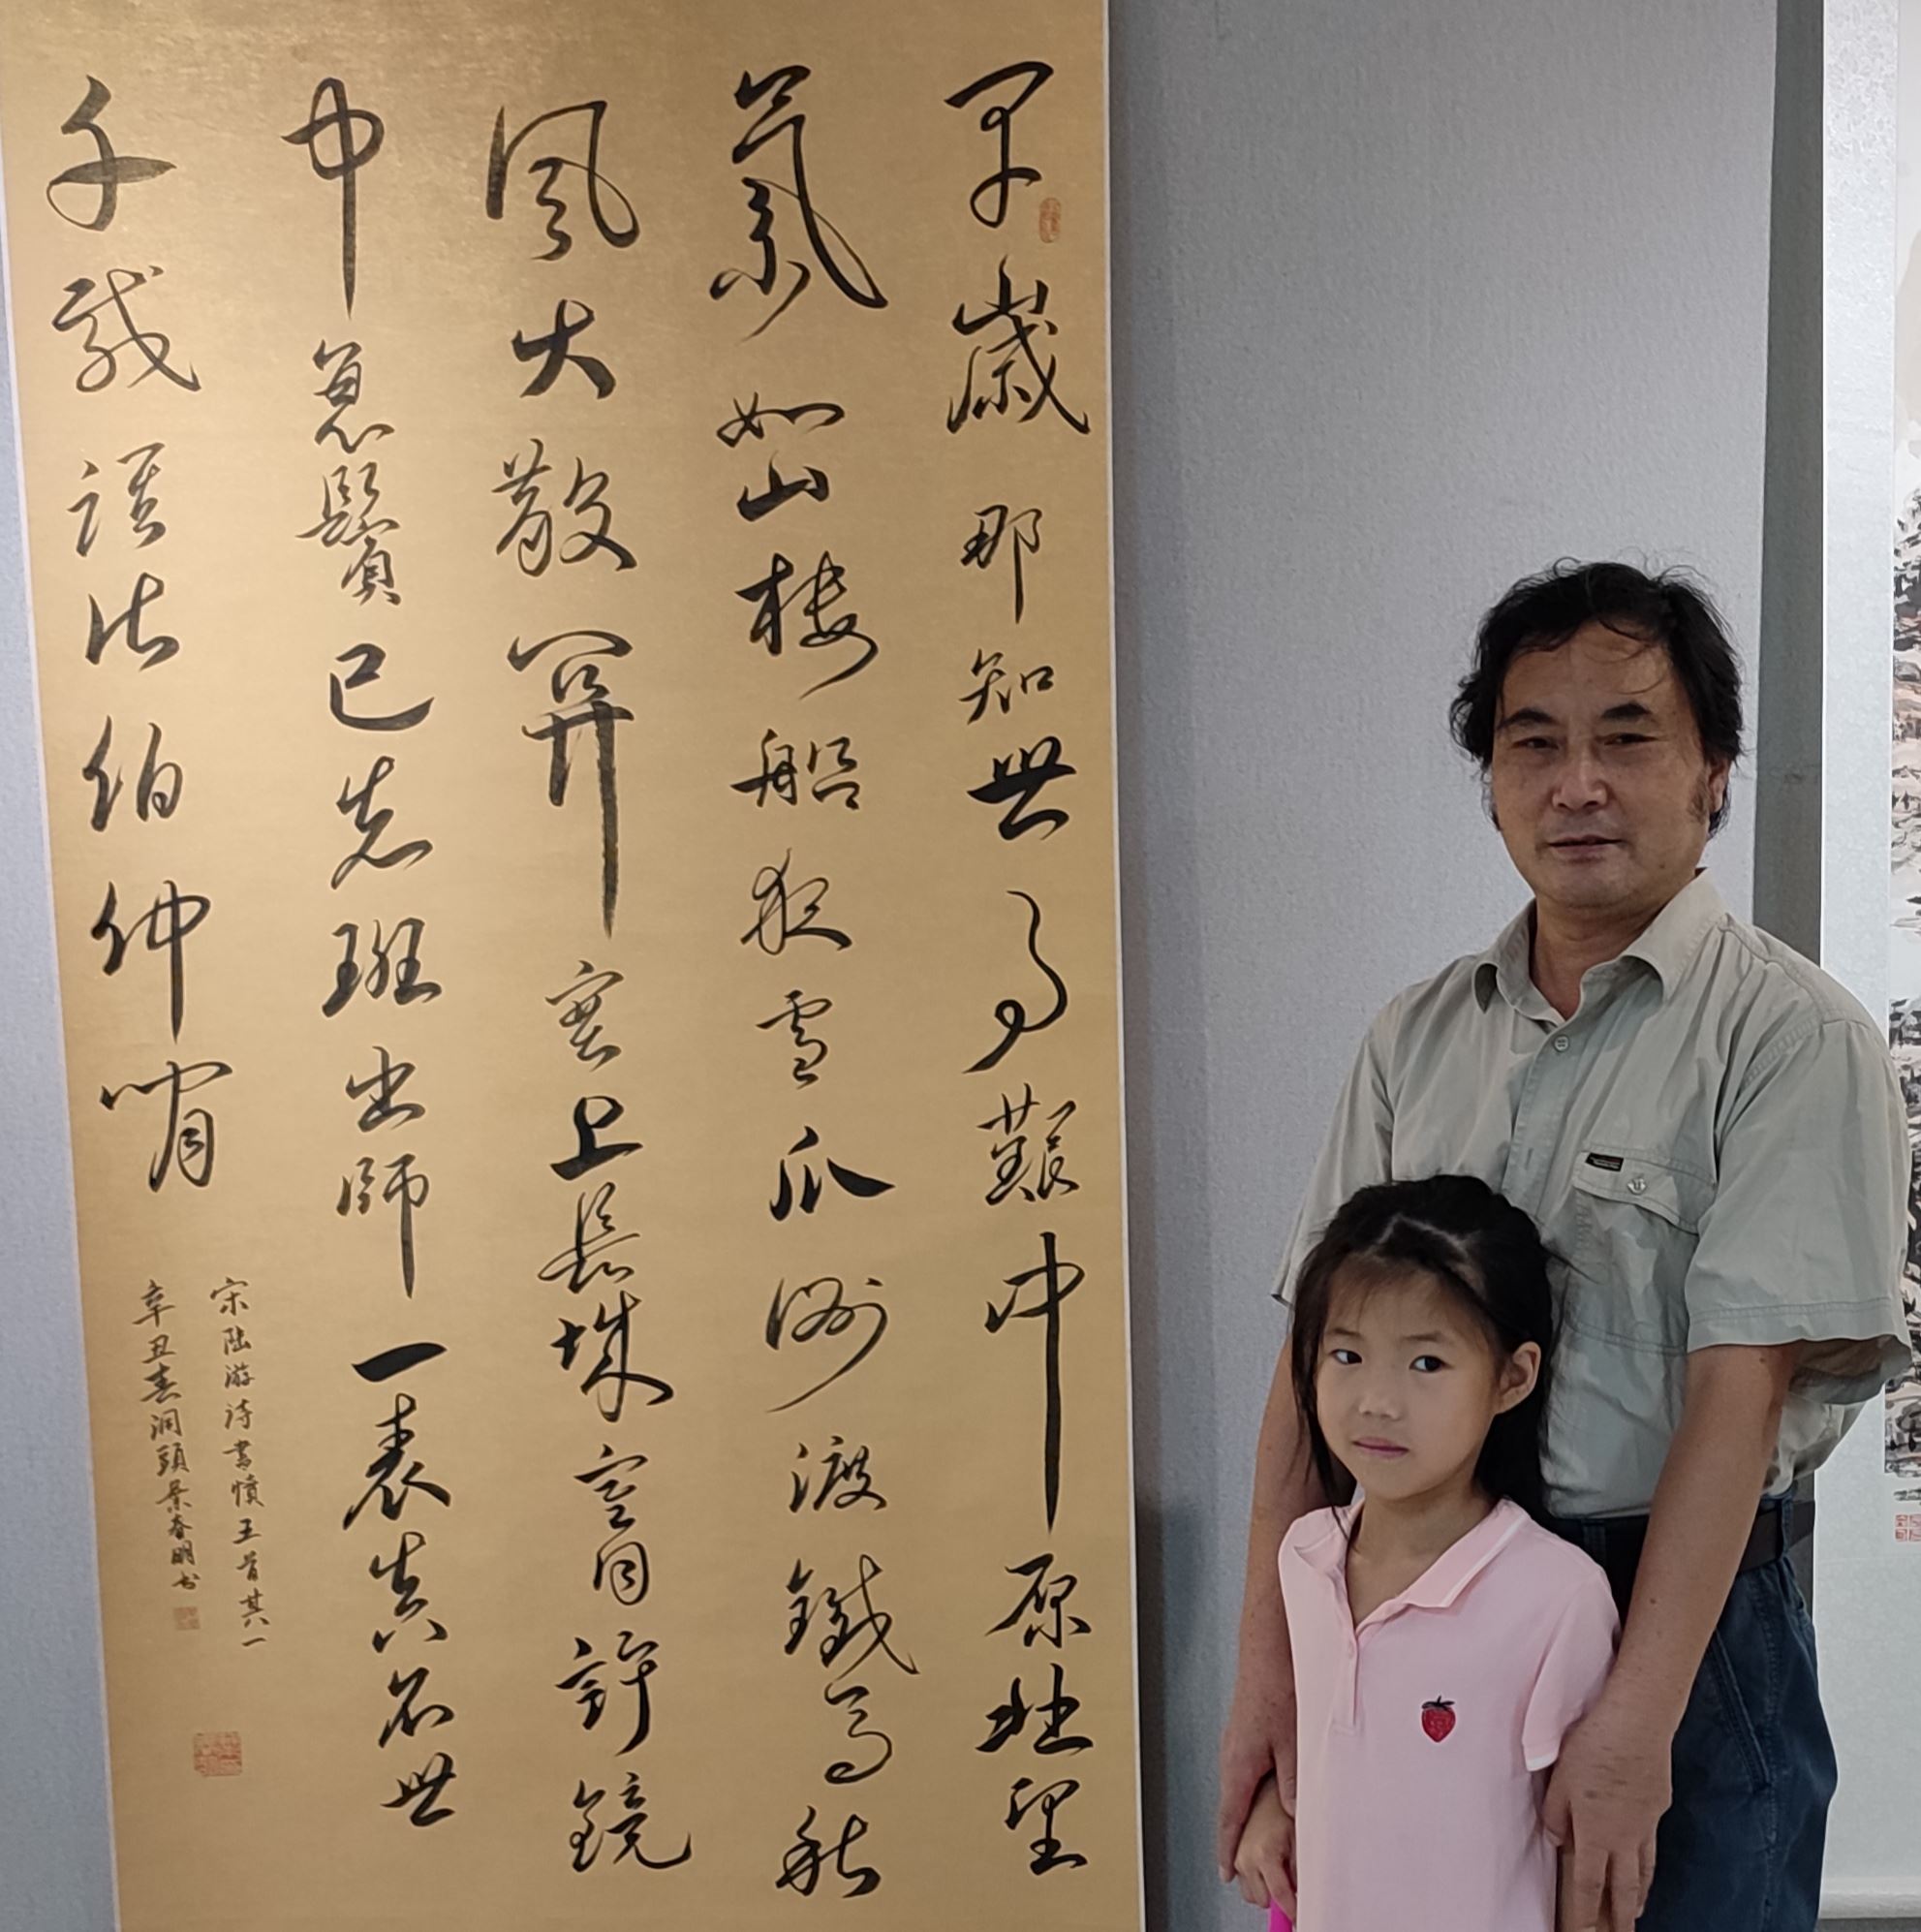 早歲那知世事艱中原北望
氣如山樓船夜雪瓜洲渡鐵馬秋
風大散關塞上長城空自許鏡
中衰鬢已先斑出師一表真名世
千載誰堪伯仲間
宋陸游詩書憤五首其一
辛丑春洞頭春明书